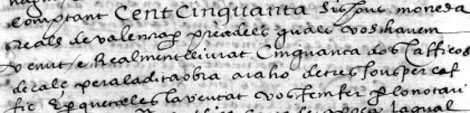 comptant Cent Cinquanta sis sous moneda
Reals de Valencia per preu dels quals vos havem
venut e Realment lliurat Cinquanta dos
de cals per a la dita obra a raho de tres sous per caf
fis E per que tal es la veritat vos fem fer per lo notari
la qual